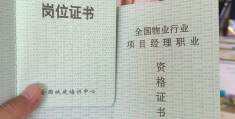 岗位证书
全国城建培训中心
全国物业行业
项目经理职业
资
格
证
书